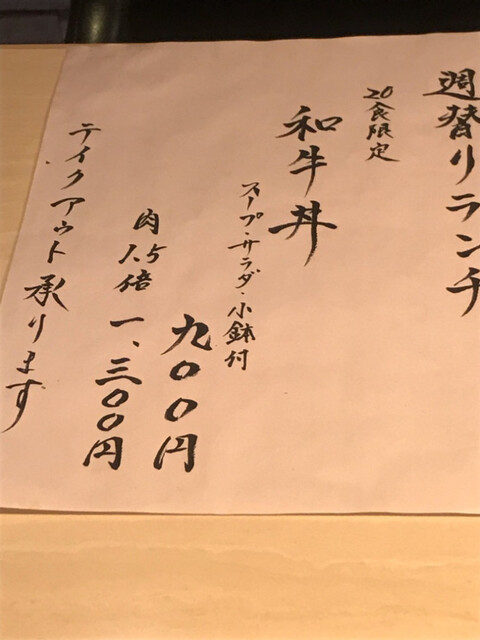 週替りランチ
20食限定
和牛丼
スープ・サラダ・小鉢付
九〇〇円
肉1.5倍
一、三〇〇円
テイクアウト承ります